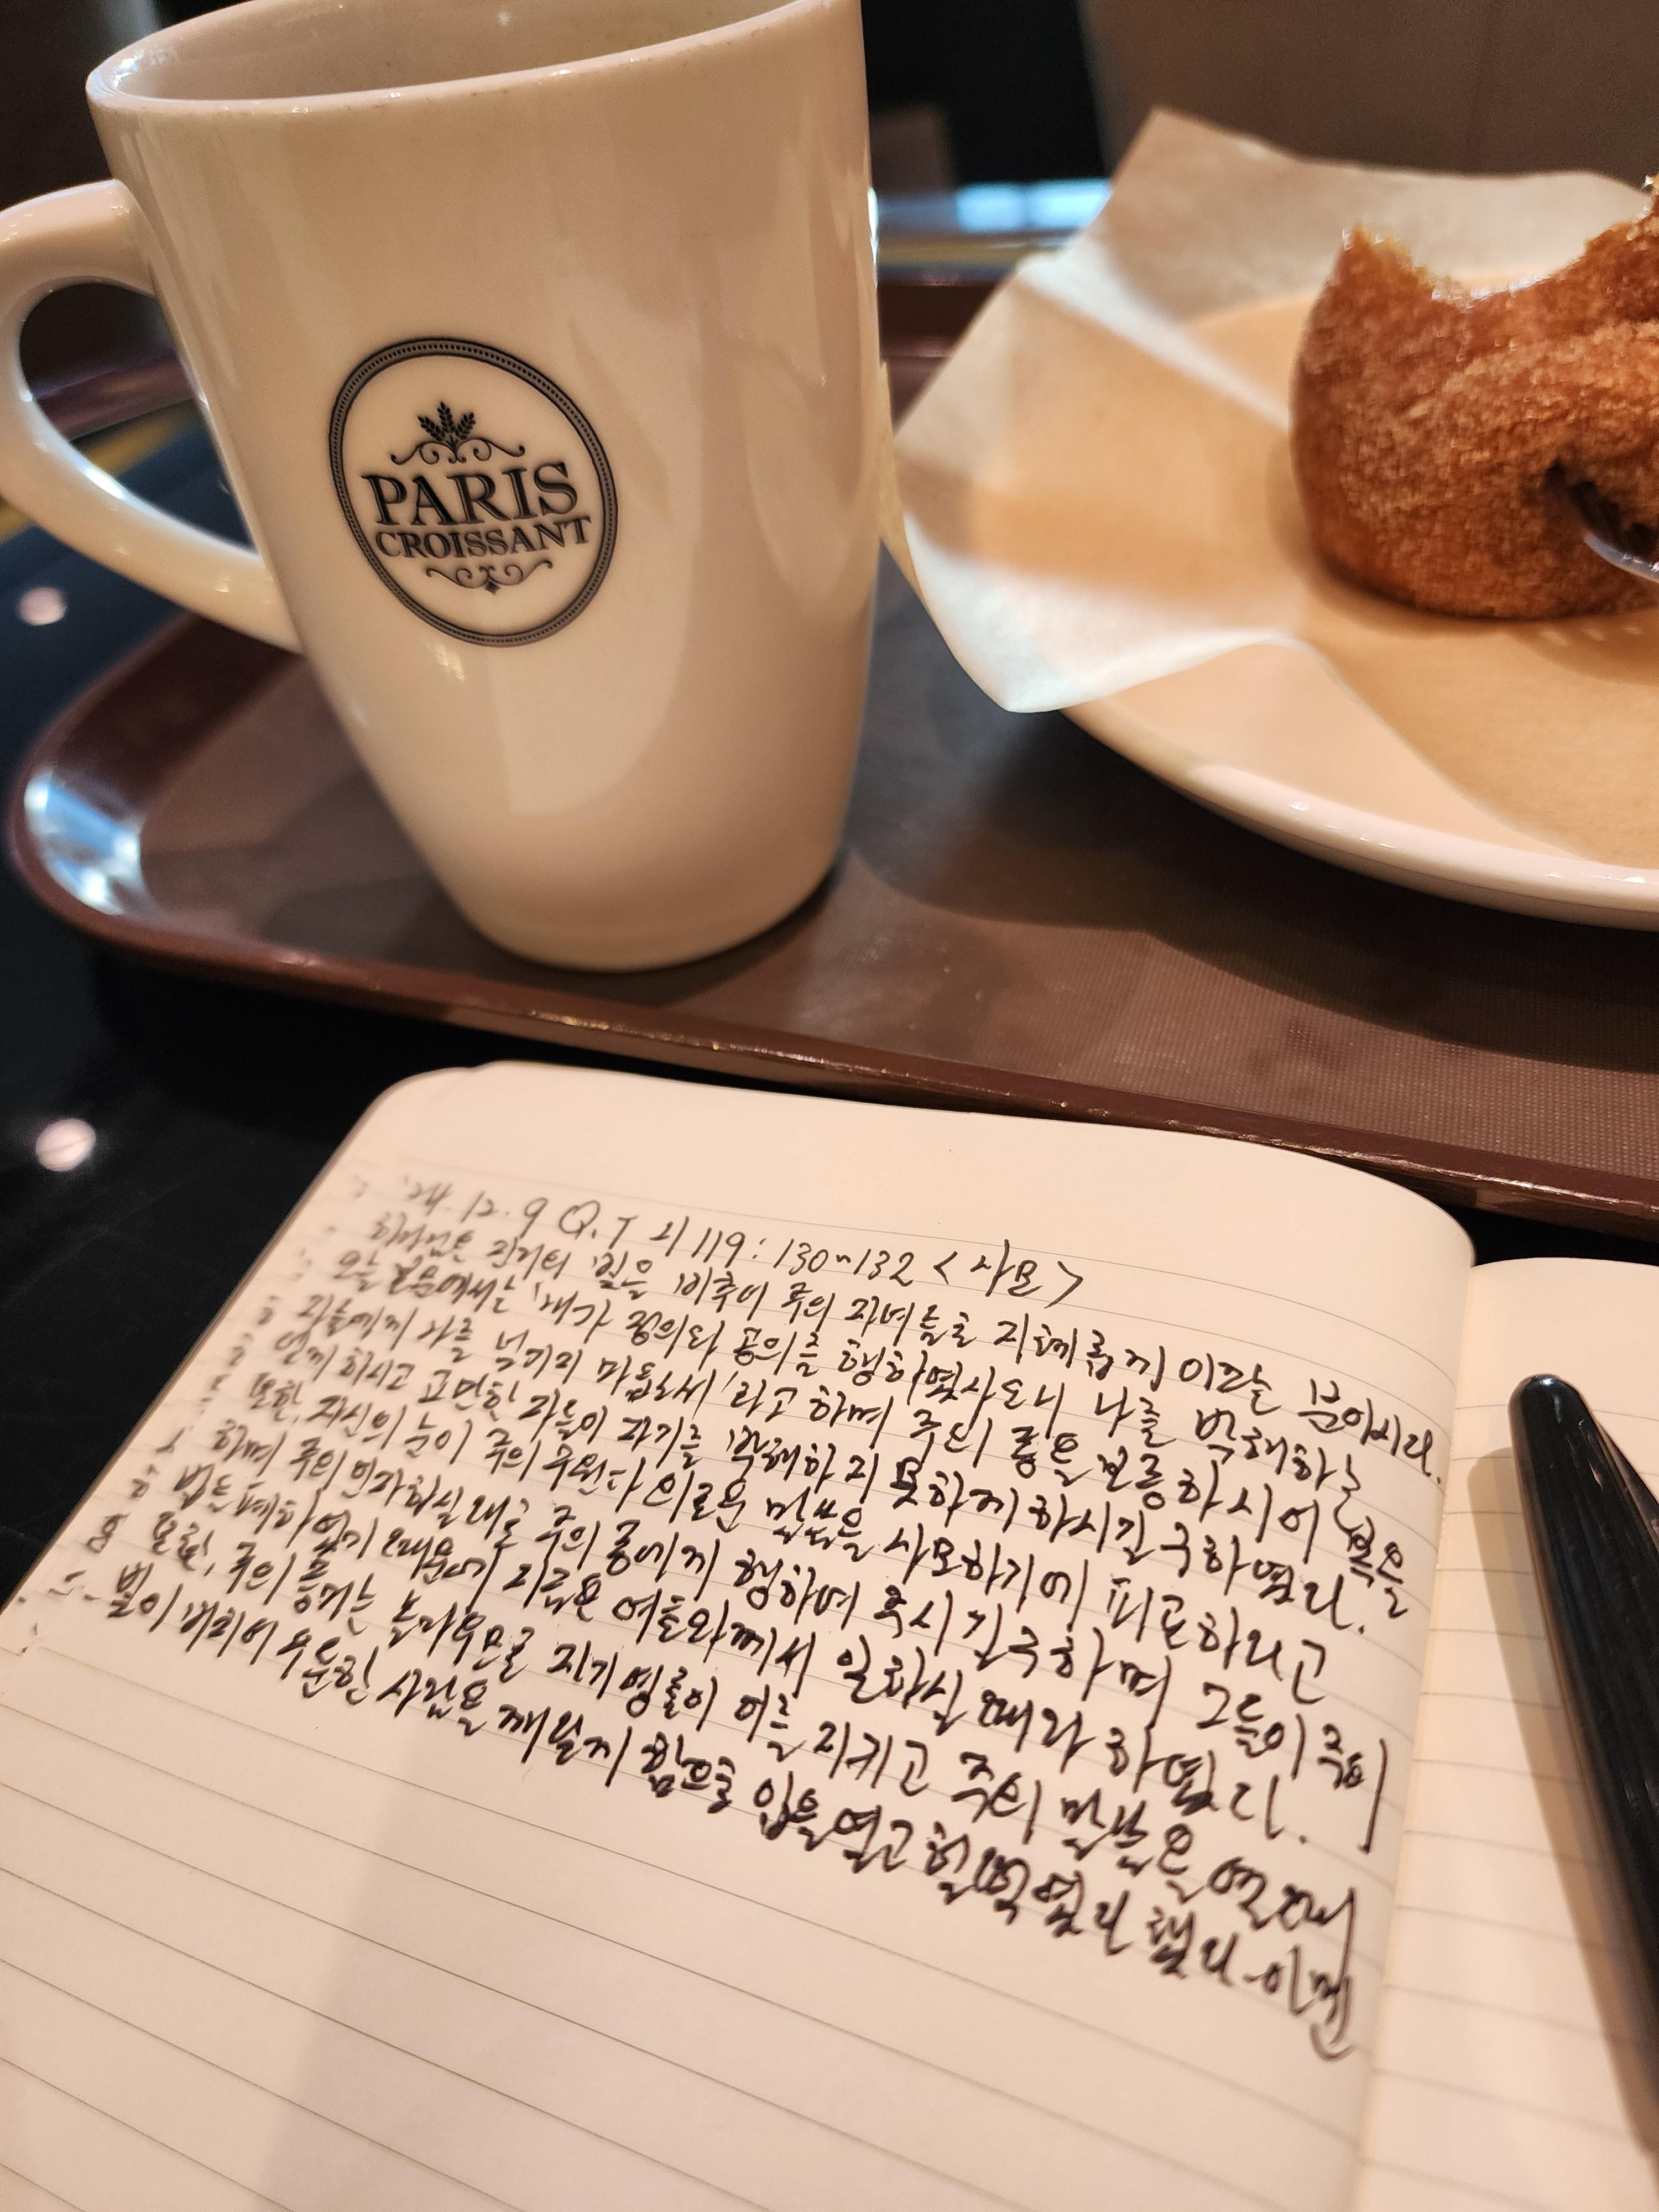 PARIS
CROISSANT
'24.12.9 Q.T 시119:130~132 <사모>
하나님은 진리의 빛을 비추어 주의 자녀들로 지혜롭게 이끄는 분이시다.
오늘 말씀에서는 '내가 정의와 공의를 행하였사오니 나를 박해하는
자들에게 나를 넘기지 마옵소서'라고 하며 주의 종을 보증하시어 복을
얻게 하시고 교만한 자들이 자기를 박해하지 못하게 하시길 구하였다.
또한, 자신의 눈이 주의 구원과 의로운 말씀을 사모하기에 피곤하다고
하며 주의 인자하심대로 주의 종에게 행하여 주시길 구하며 그들이 주의
법을 폐하였기 때문에 지금은 여호와께서 일하실 때라 하였다.
또한, 주의 증거는 놀라우므로 자기 영혼이 이를 지키고 주의 말씀을 열때
빛이 비치어 우둔한 사람을 깨닫게 함으로 입을 열고 헐떡였다 했다. 아멘